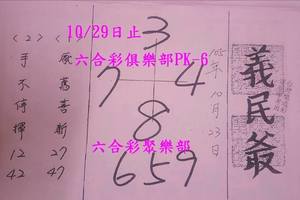 10/29日止
六合彩俱樂部PK-6
六合彩聚樂部
3
7 4
8
659
105年10月23日
義民爺
<2>
手不停揮
12
42
<1>
27
47